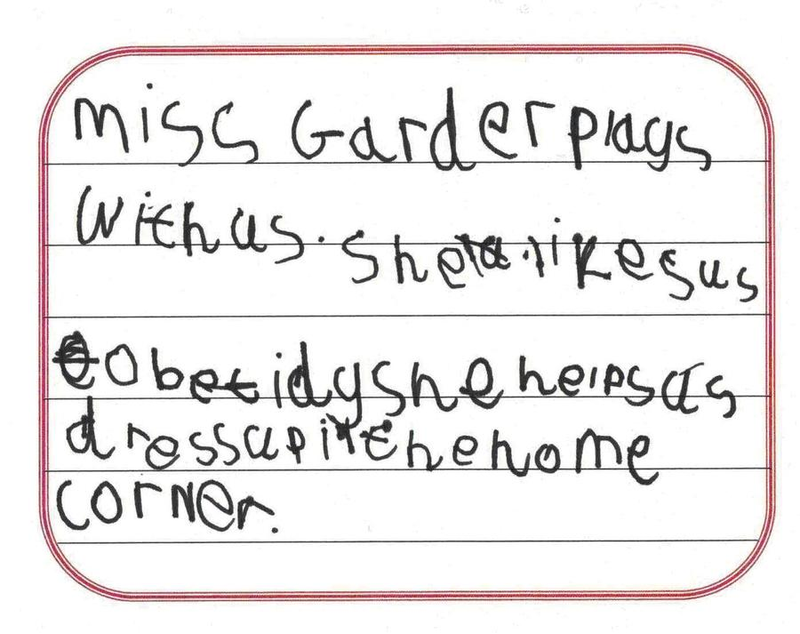 miss Garder plays
with us. She likes us
to be tidy she helps us
dress up in the home
corner.